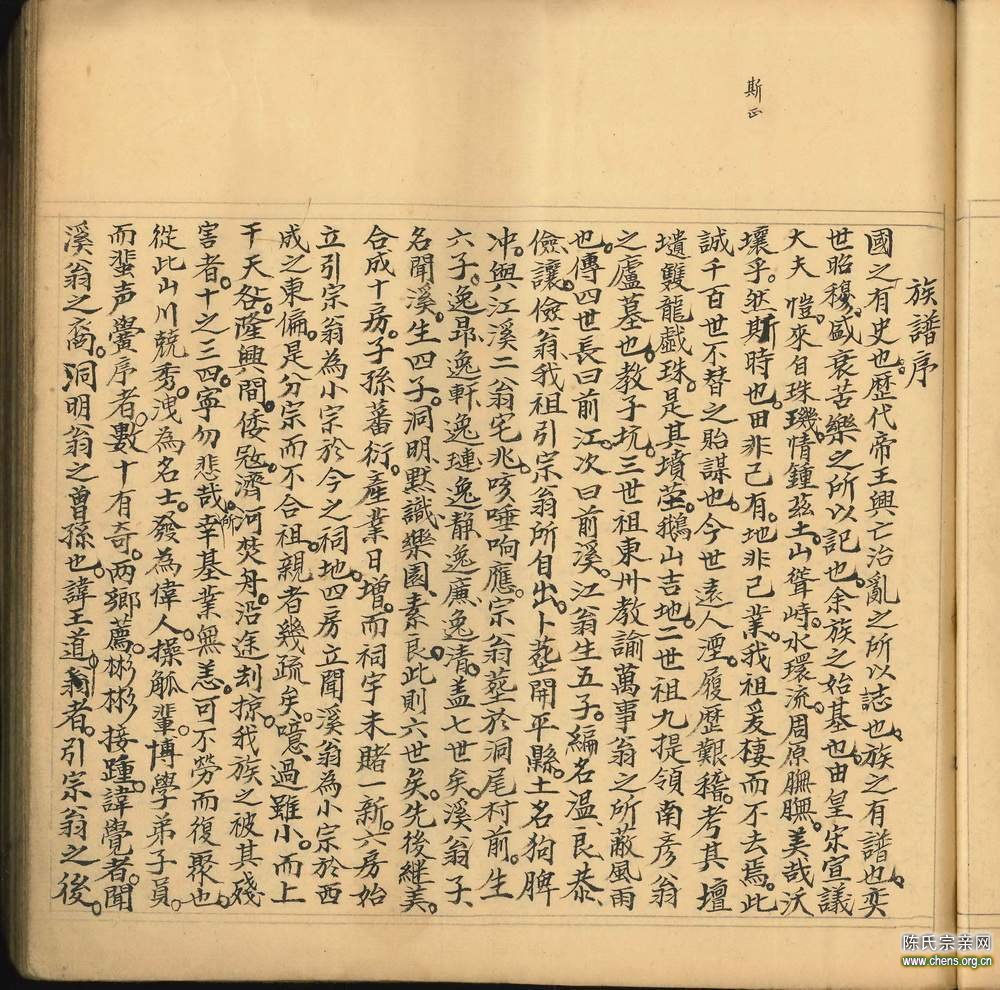 斯正
族譜序
國之有史也。歷代帝王興亡治亂之所以誌也。族之有譜也。奕
世昭穆。盛衰苦樂之所以記也。余族之始基也。由皇宋宣議
大夫愷。來自珠璣。情鍾茲土。山聳峙。水環流。周原膴膴。美哉沃
壤乎。斯時也。田非己有。地非己業。我祖爰棲而不去焉。此
誠千百世不替之貽謀也。今世遠人湮。履歷艱稽。考其壇
壝。雙龍戲珠。是其墳塋。鵝山吉地。二世祖九提領南彥翁
之廬墓也。教子坑。三世祖東卅教諭萬事翁之所蔽風雨
也。傳四世。長曰前江。次曰前溪。江翁生五子。編名溫、良、恭、
儉、讓。儉翁我祖引宗翁所自出。卜塟開平縣。土名狗脾
冲。與江溪二翁宅兆。咳唾响應。宗翁塟於洞尾村前。生
六子。逸昂、逸軒、逸璉、逸靜、逸廉、逸清。盖七世矣。溪翁子、
名聞溪。生四子。洞明、默識、樂園、素良。此則六世矣。先後継美。
合成十房。子孫蕃衍。產業日增。而祠宇未賭一新。六房始
立引宗翁為小宗於今之祠地。四房立聞溪翁為小宗於西
成之東偏。是分宗而不合祖。親者幾疏矣。噫、過雖小。而上
干天咎。隆興間。倭寇濟河焚舟。沿途刦掠。我族之被其殘
害者。十之三四。寧勿悲哉。所幸基業無恙。可不勞而復聚也。
從此山川兢秀。洩為名士。發為偉人。操觚輩。博學弟子員。
而蜚声黌序者。數十有奇。兩鄉薦。彬彬接踵。諱覺者。聞
溪翁之裔。洞明翁之曾孫也。諱王道者。引宗翁之後。
陈氏宗亲网
www.chens.org.cn